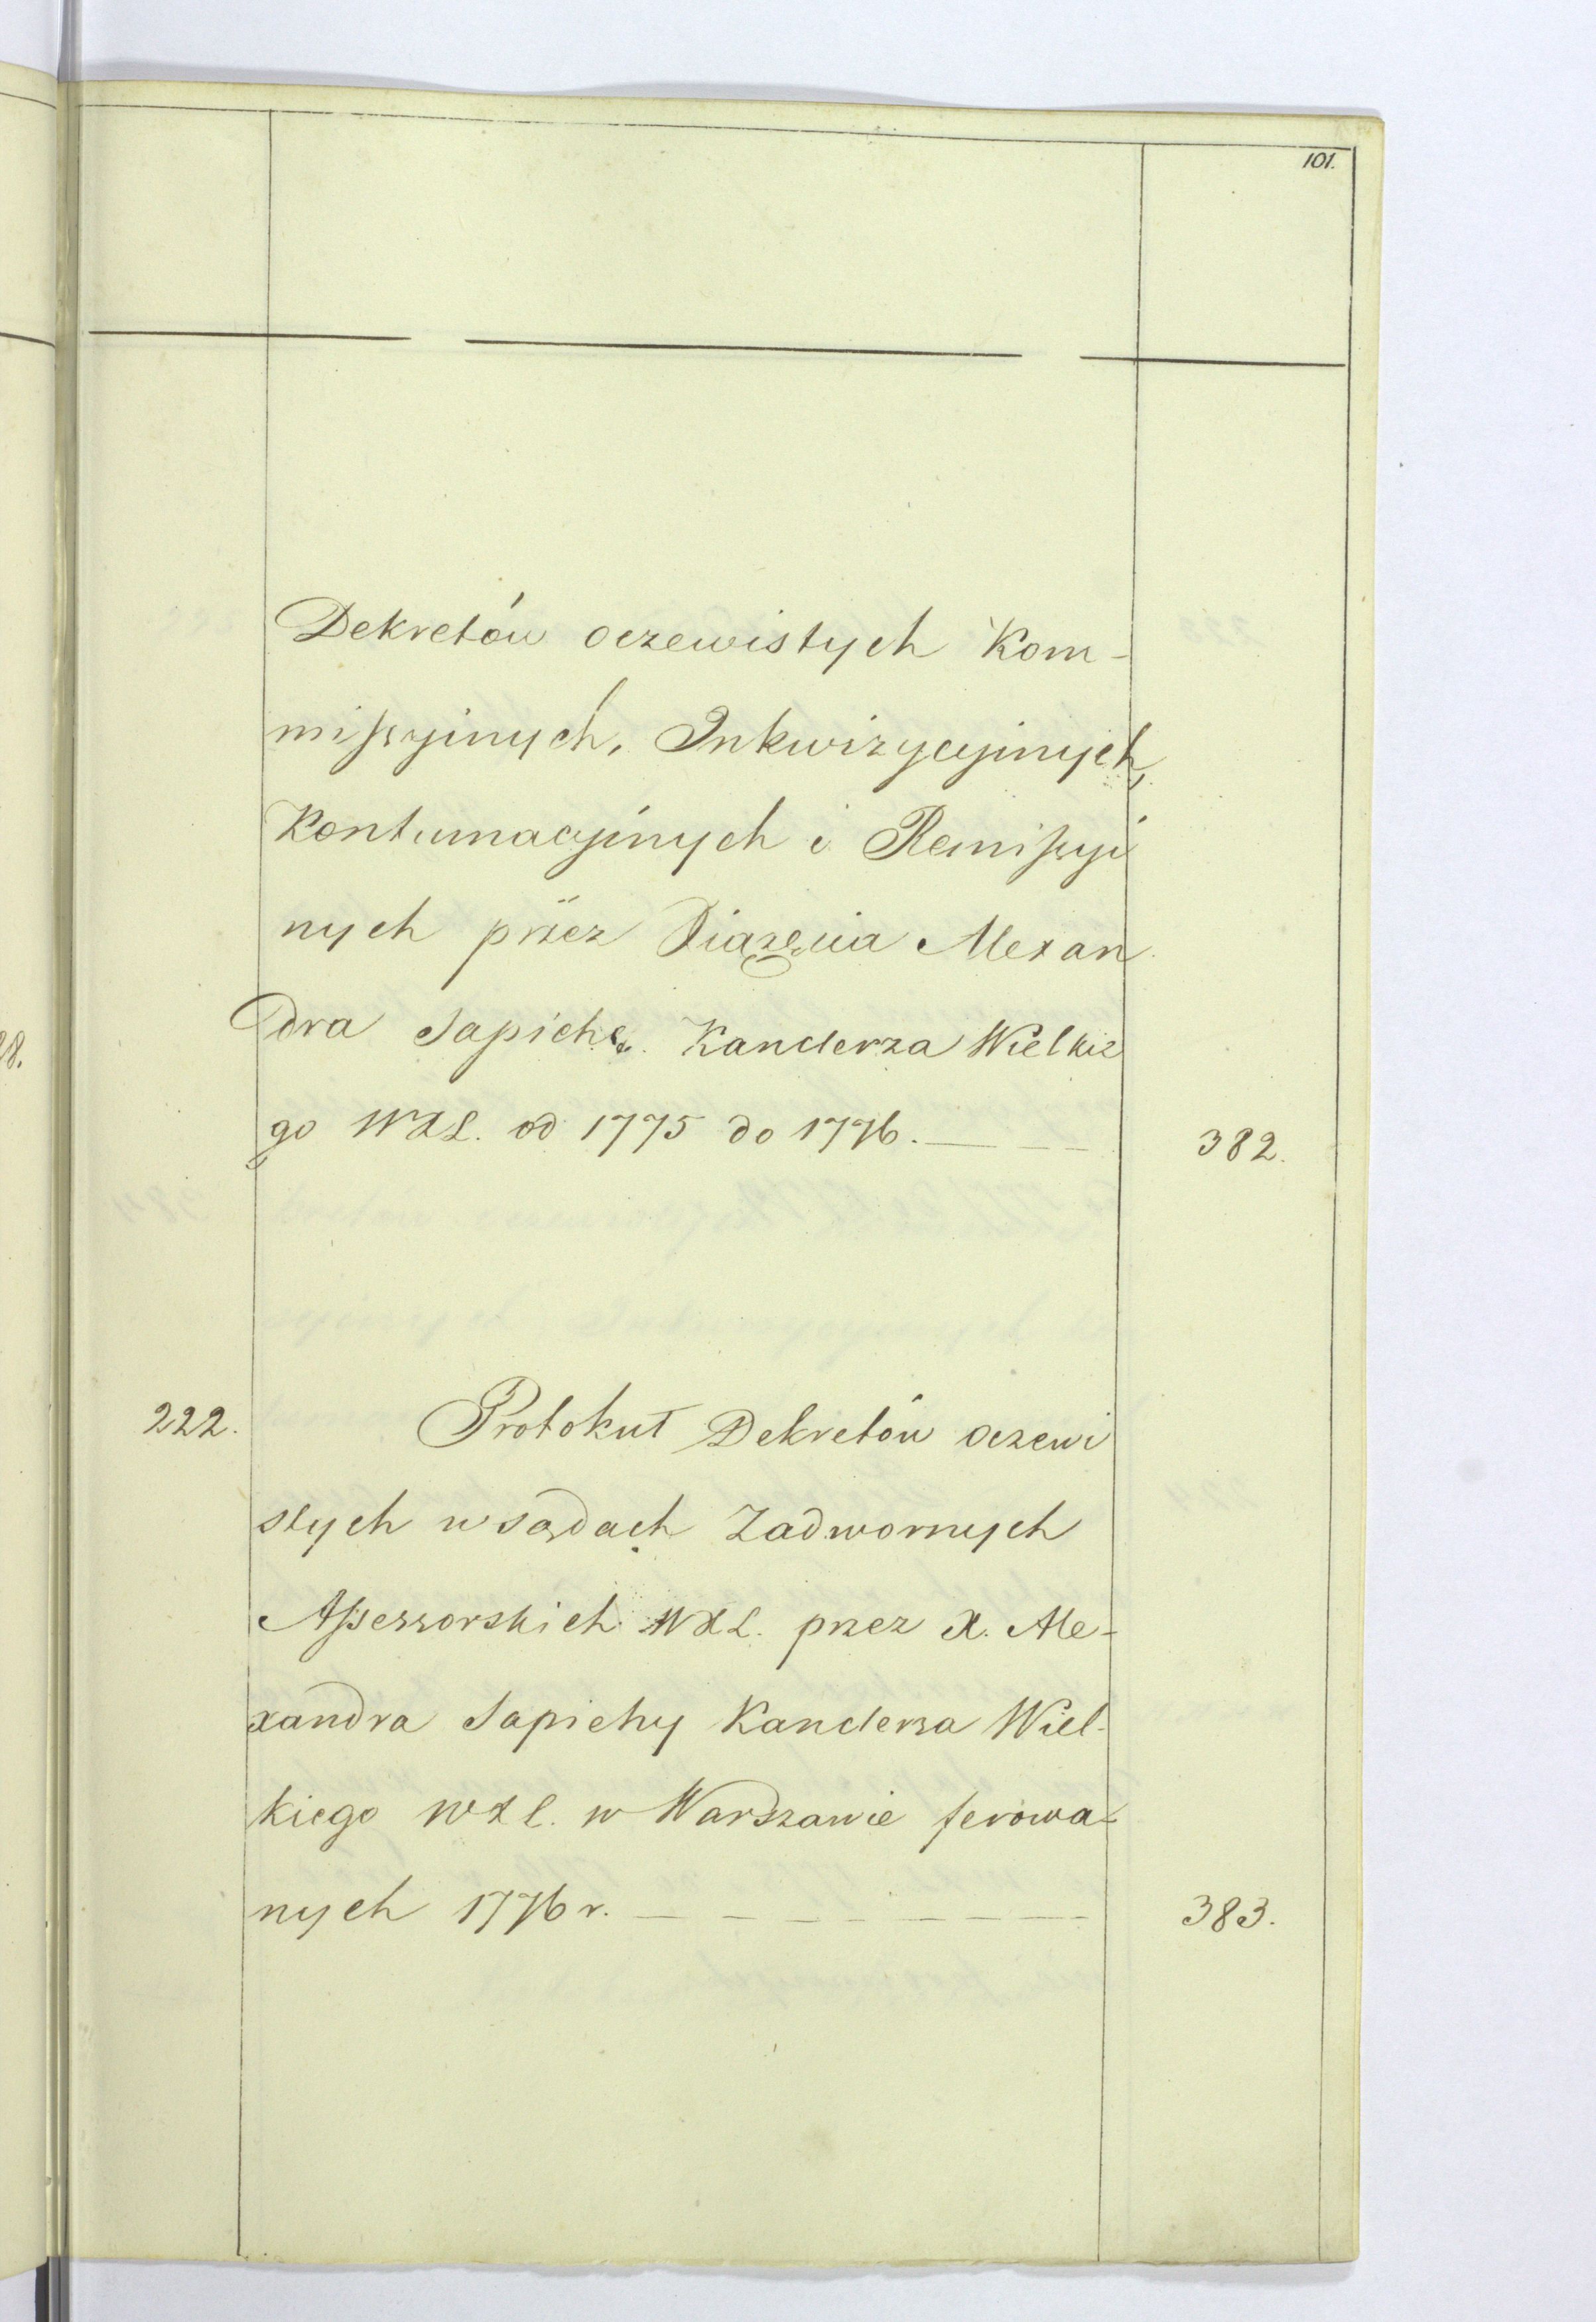 101.
Dekretów oczewistych Kom-
missyinych, Inkwizycyinych,
Kontumacyinych i Remissyi
nych przez Xiążęcia Alexan
dra Sapiehę Kanclerza Wielkie
go WXL. od 1775 do 1776. 382.
222. Protokuł Dekretów oczewi
stych w sądach Zadwornych
Assessorskich WXL. przez X. Ale-
xandra Sapiehy Kanclerza Wiel-
kiego WXL. w Warszawie ferowa-
nych 1776 r. 383.